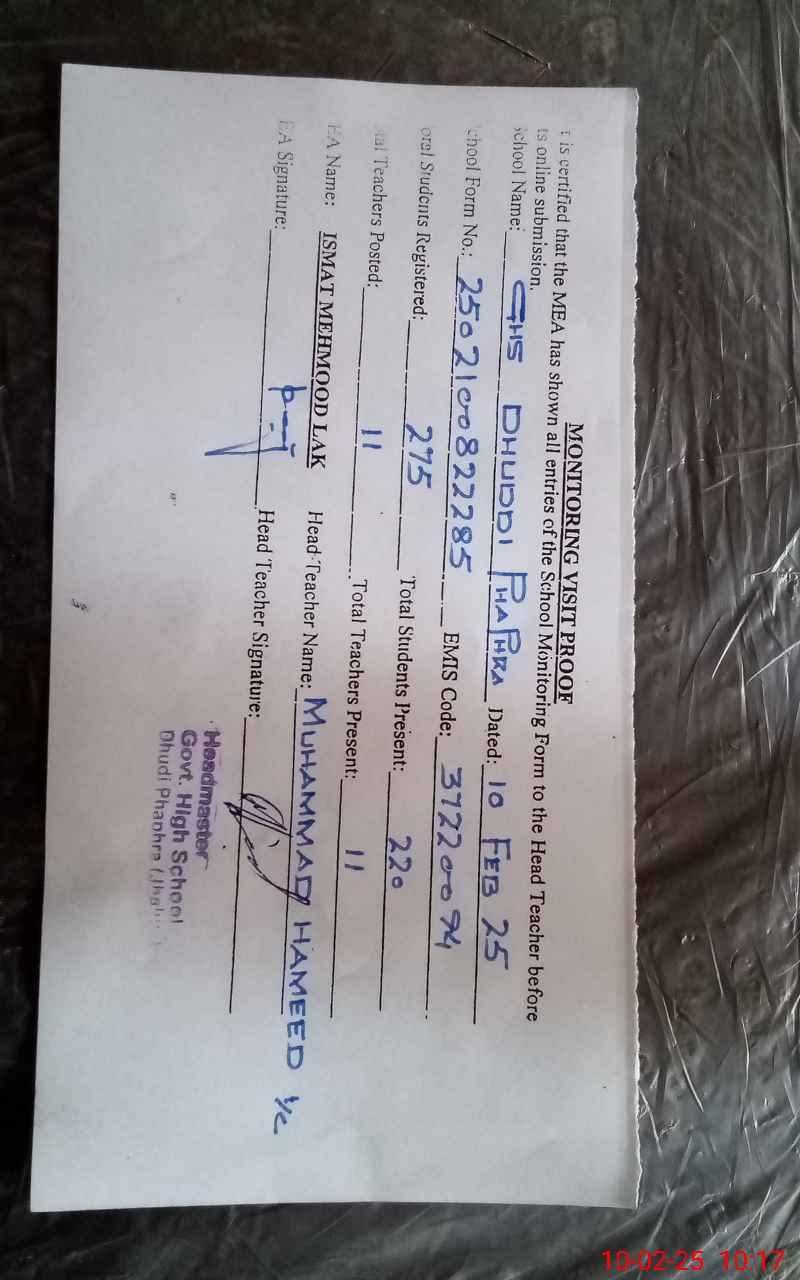 MONITORING VISIT PROOF
t is certified that the MEA has shown all entries of the School Monitoring Form to the Head Teacher before
ts online submission.
School Name: GHS DHUDDI PHAPHRA Dated: 10 FEB 25
chool Form No.: 2502100822285 EMIS Code: 37220094
otal Students Registered: 275 Total Students Present: 220
tal Teachers Posted: 11 Total Teachers Present: 11
EA Name: ISMAT MEHMOOD LAK Head Teacher Name: MUHAMMAD HAMEED I/C
EA Signature: Head Teacher Signature:
Headmaster
Govt. High School
Dhudi Phaphra
10-02-25 10:17